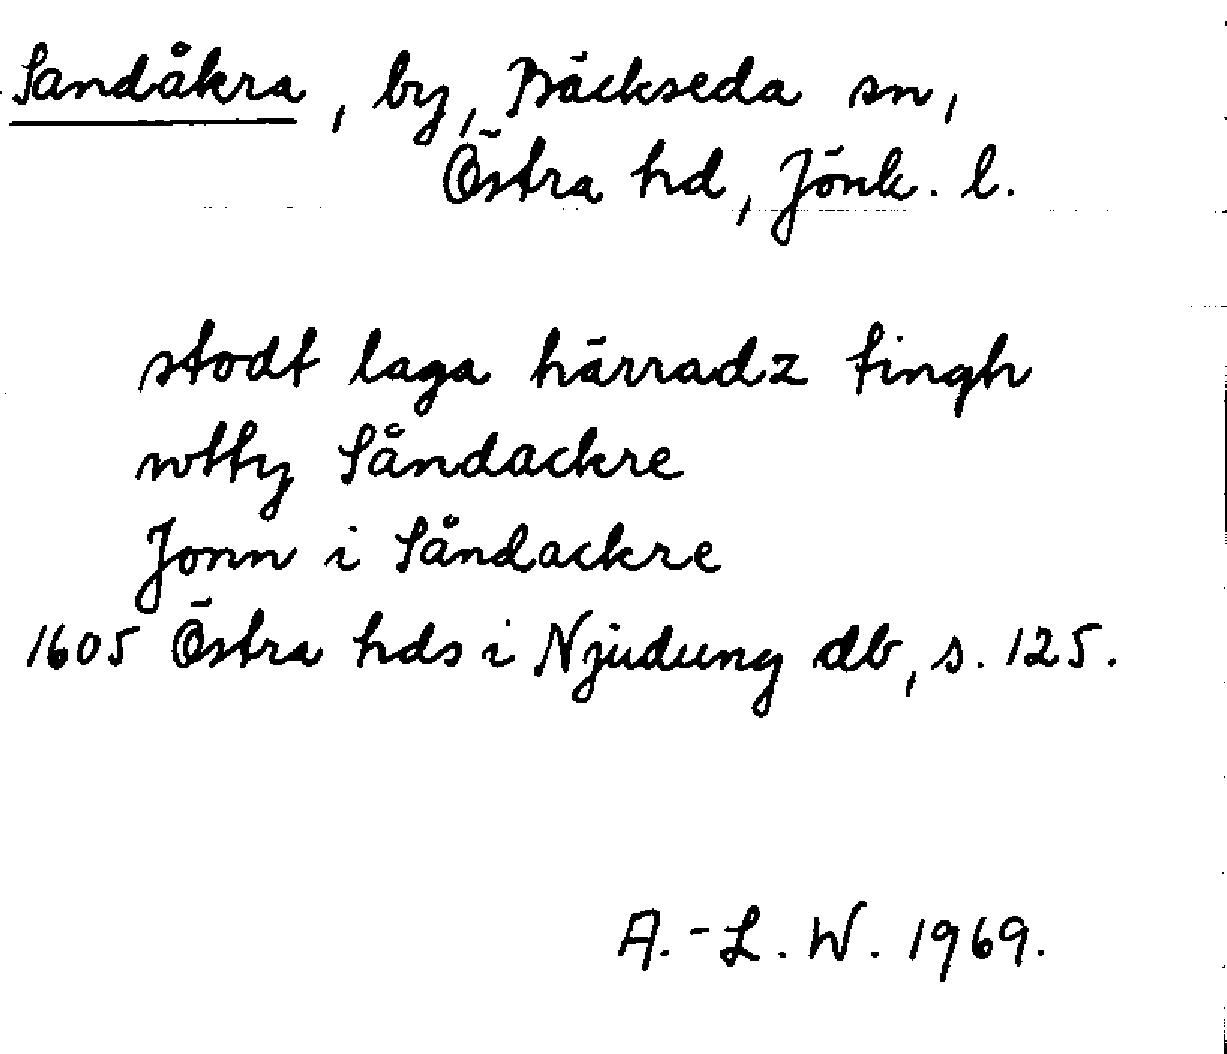 Sandåkra, by, Bäckseda sn,
Östra hd, Jönk. l.
stodt laga härradz tingh
wtty Såndackre
Jonn i Såndackre
1605 Östra hds i Njudung db, s. 125.
A.-L. W. 1969.